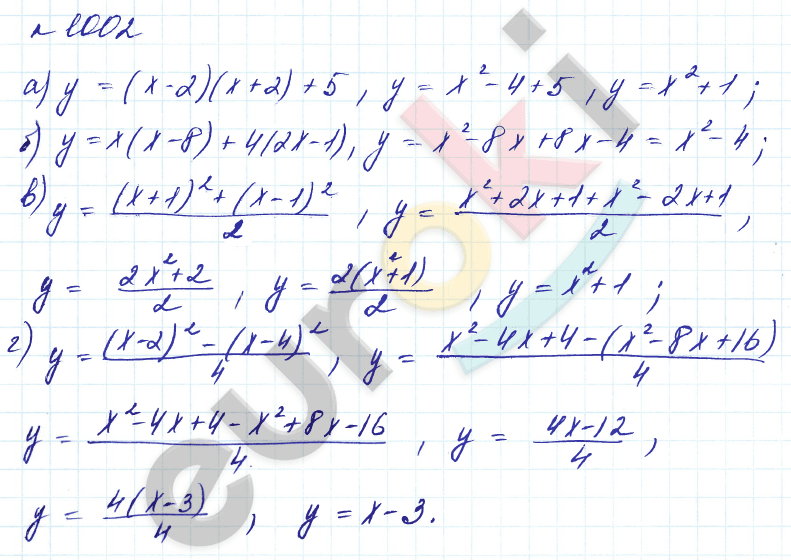 № 1002
а) y = (x-2)(x+2)+5, y = x²-4+5, y = x²+1;
б) y = x(x-8)+4(2x-1), y = x²-8x+8x-4 = x²-4;
в) y = ((x+1)²+(x-1)²)/2, y = (x²+2x+1+x²-2x+1)/2,
y = (2x²+2)/2, y = 2(x²+1)/2, y = x²+1;
г) y = ((x-2)²-(x-4)²)/4, y = (x²-4x+4-(x²-8x+16))/4
y = (x²-4x+4-x²+8x-16)/4, y = (4x-12)/4,
y = 4(x-3)/4, y = x-3.
euroki